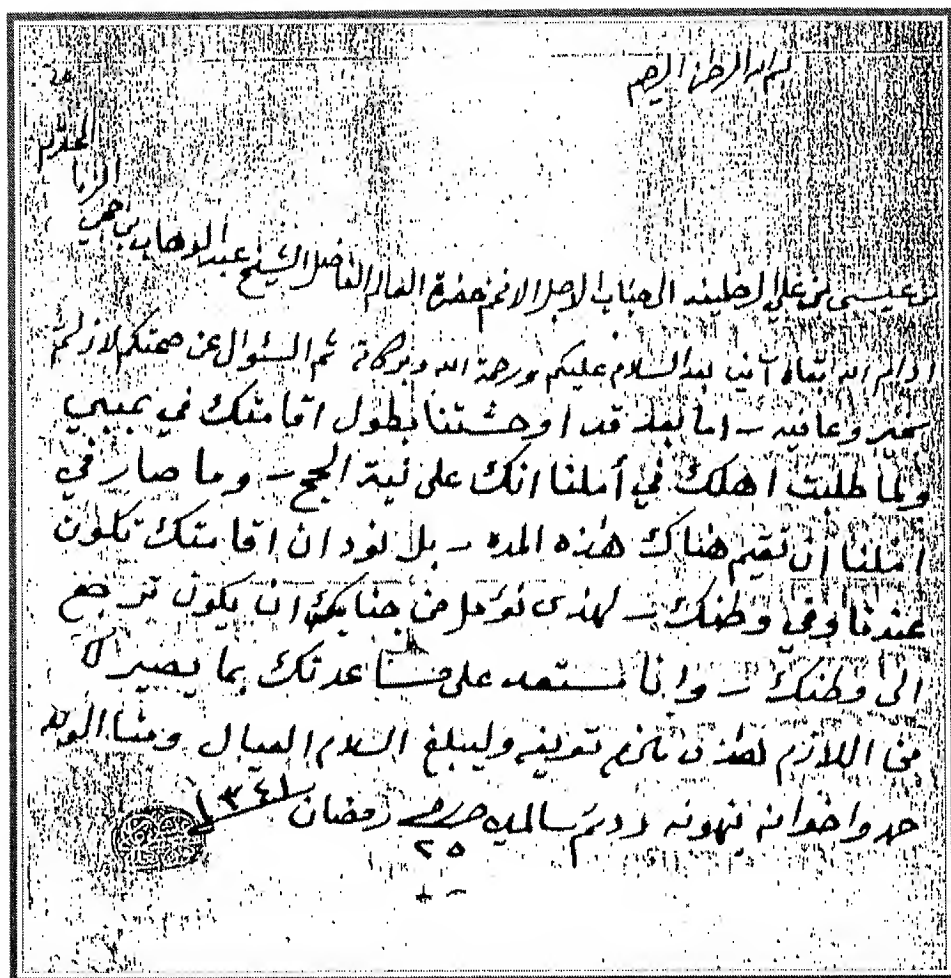 بسم الله الرحمن الرحيم
المحترم
الزياني
من عيسى بن علي الخليفه الى جناب الاجل الافخم حضرة العالم الفاضل الشيخ عبد الوهاب بن حجي
ادام الله تعالى آمين بعد السلام عليكم ورحمة الله وبركاته ثم السئوال عن صحتكم لازلتم
بخير وعافيه - اما بعد قد اوحشتنا بطول اقامتك في بمبي
ولما طلبت اهلك في أملنا انك على نية الحج - وما صار في
املنا ان تقيم هناك هذه المده - بل نود ان اقامتك تكون
عندنا وفي وطنك - لهذى نؤمل من جنابك ان يكون ترجع
الى وطنك - وانا مستعد على مساعدتك بما يصير لك
من اللازم هذى مالزم تعريفه وليبلغ السلام العيال ومنا الولد
حمد واخوانه ينهونه ودمتم سالمين حرر في رمضان ١٣٤١
٢٥